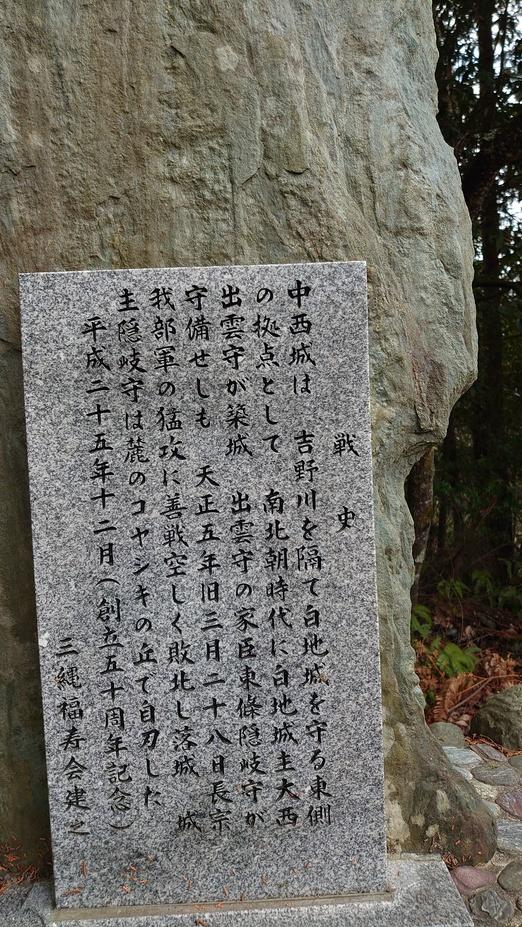 戦史
中西城は　吉野川を隔て白地城を守る東側
の拠点として　南北朝時代に白地城主大西
出雲守が築城　出雲守の家臣東條隠岐守が
守備せしも　天正五年旧三日二十八日長宗
我部軍の猛攻に善戦空しく敗北し落城　城
主隠岐守は麓のコヤシキの丘で自刃した
平成二十五年十二月（創立五十周年記念）
三縄福寿会建之